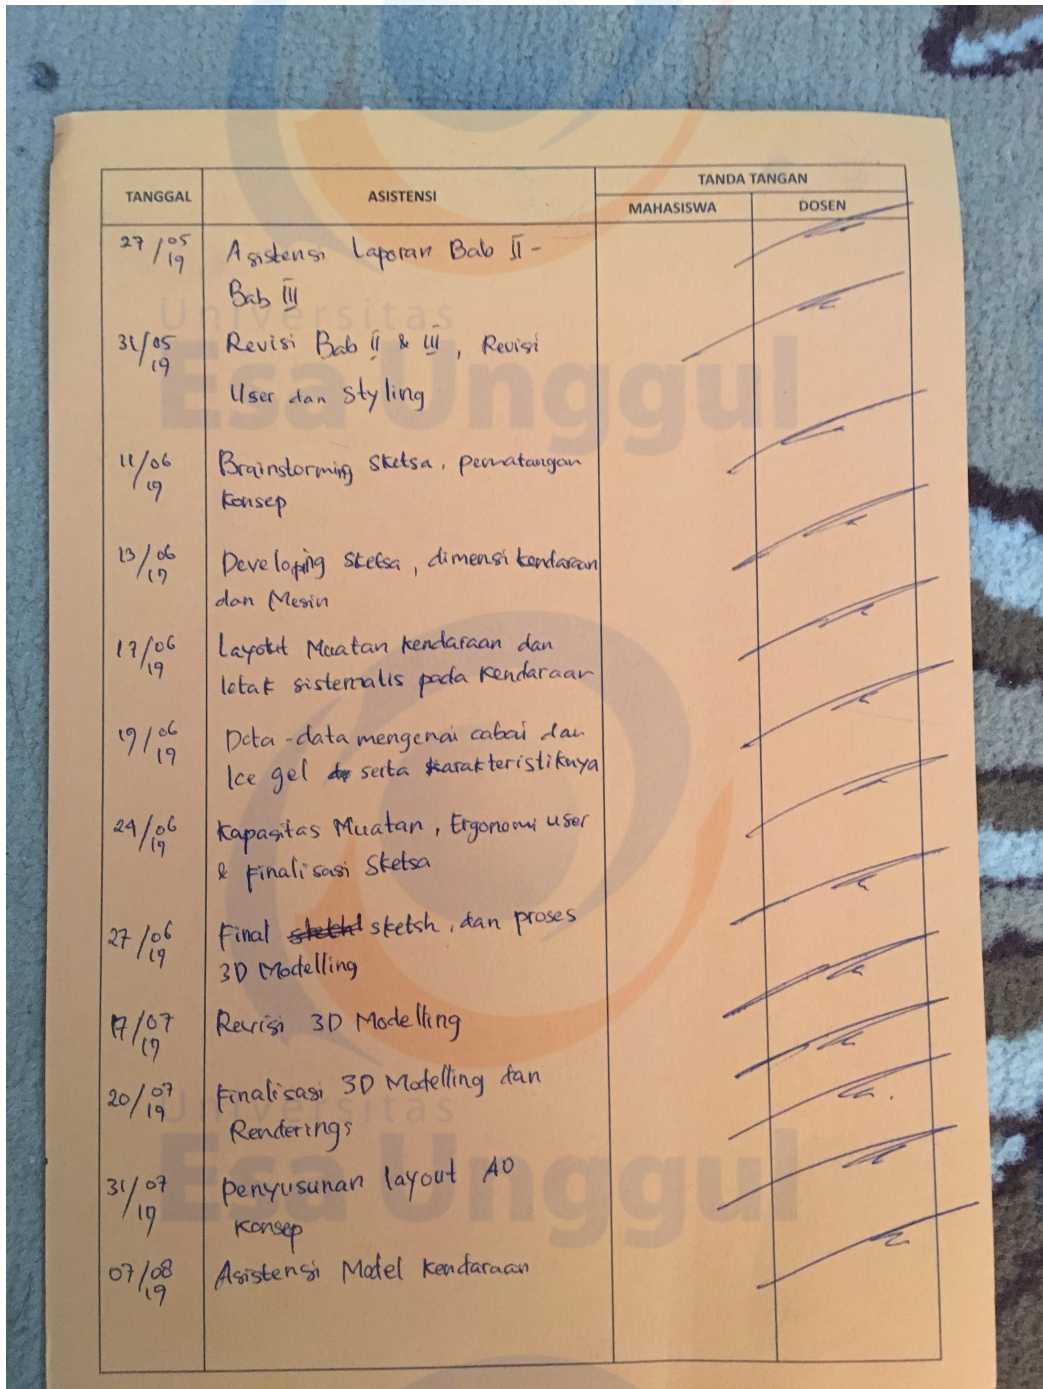 TANGGAL
ASISTENSI
TANDA TANGAN
MAHASISWA
DOSEN
27/05
19
Asistensi Laporan Bab II -
Bab III
31/05
19
Revisi Bab II & III, Revisi
User dan Styling
11/06
19
Brainstorming Sketsa, pematangan
Konsep
13/06
19
Developing Sketsa, dimensi kendaraan
dan Mesin
17/06
19
Layout Muatan kendaraan dan
letak sistematis pada Kendaraan
19/06
19
Data-data mengenai cabai dan
Ice gel serta karakteristiknya
24/06
19
Kapasitas Muatan, Ergonomi user
& Finalisasi Sketsa
27/06
19
Final sketsh, dan proses
3D Modelling
17/07
19
Revisi 3D Modelling
20/07
19
Finalisasi 3D Modelling dan
Renderings
31/07
19
Penyusunan layout A0
Konsep
07/08
19
Asistensi Model Kendaraan
Universitas
Esa Unggul
Universitas
Esa Unggul